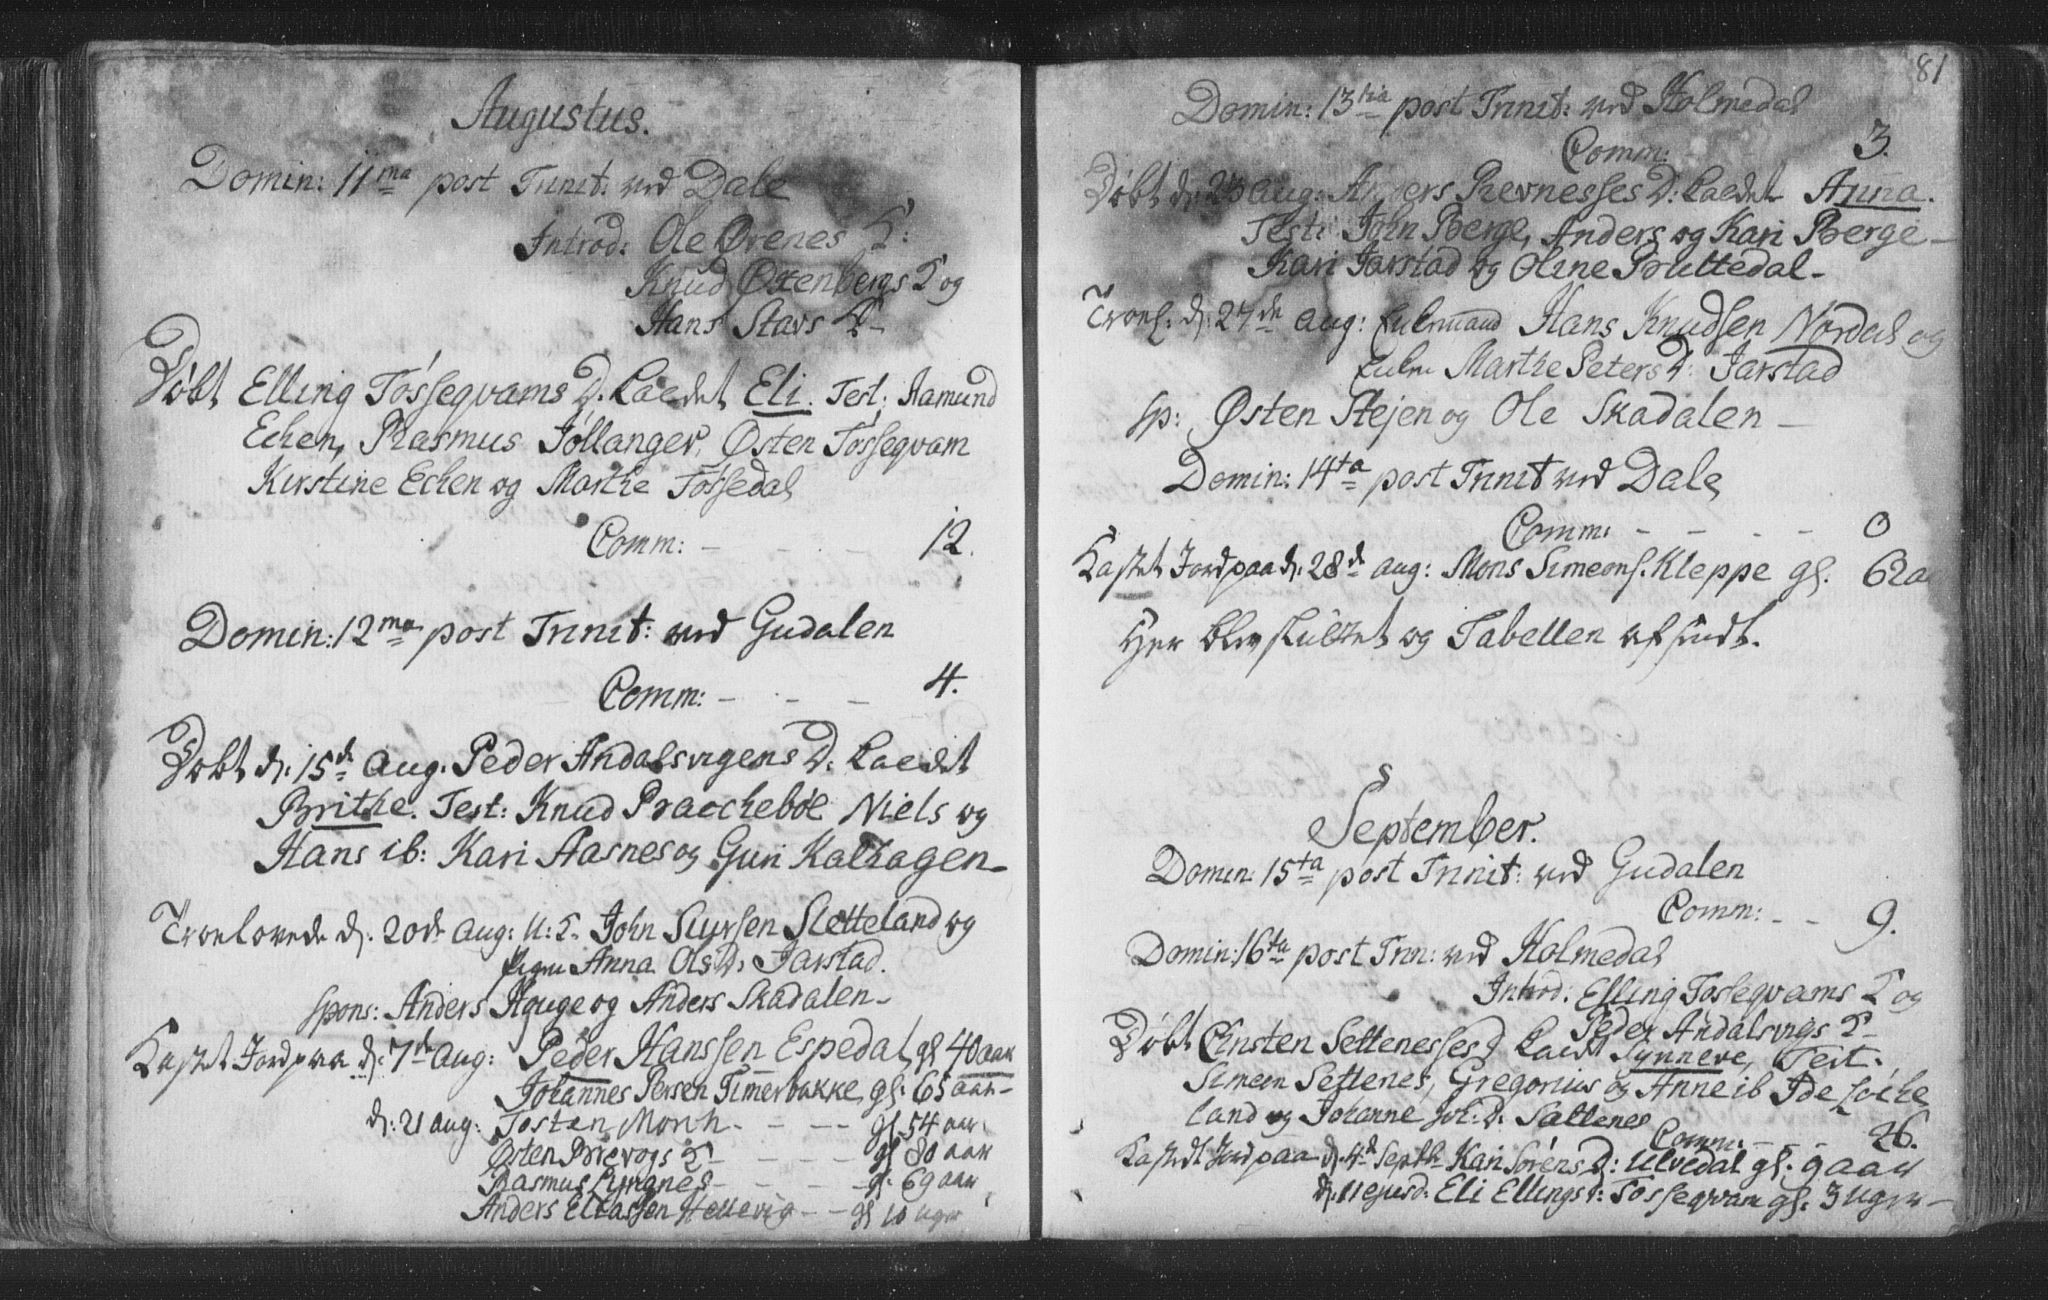 Augustus.
Domin: 11ma post Trinit: ved Dale
Introd: Ole Ørenes K:
Knud Øxenbergs K og
Hans Stavs K-
Døbt Elling Tøssegvams D. kaedet Eli. Test: Aamund
Echen, Rasmus Jøllanger, Østen Tøssegvam
Kirstine Echen og Marthe Tøssedal
Comm: - - - 12.
Domin: 12ma post Trinit: ved Gudalen
Comm: - - - 4.
Døbt d: 15de Aug. Peder Andalsvigens D: kaedet
Brithe. Test: Knud Braechebøe Niels og
Hans ib: Kari Aasnes og Guri Kalhagen-
Troelovede d. 20de Aug: U: K. John Siursen Sletteland og
Pigen Anna Ols D. Jarstad.
Spons: Anders Hauge og Anders Skadalen-
Kastet Jord paa d: 7de Aug: Peder Hanssen Espedal gl 40 aar
Johannes Persen Timerbakke gl: 65 aar-
d: 21 aug: Tosten Morch - - - gl 54 aar
Østen Brevogs K - - - gl 80 aar
Rasmus Lyngnes - - - gl: 69 aar
Anders Eliassen Hellevig - - gl 10 uger
81
Domin: 13tia post Trinit: ved Holmedal
Comm: 3.
Døbt d: 23 aug: Anders Revnesses D: kaedet Anna.
Test: John Berge, Anders og Kari Berge-
Kari Jarstad og Oline Bruttedal-
Troel: d: 27de aug: Hans Knudsen Nordal og
Marthe Peters D: Jarstad
Sp: Østen Stejen og Ole Skadalen-
Domin: 14ta post Trinit ved Dale
Comm: - - - - 0
Kastet Jord paa d: 28de aug: Mons Simeons. Kleppe gl. 62 aar
Her blev sluttet og Tabellen afsendt.
September.
Domin: 15ta post Trinit: ved Gudalen
Comm: - - 9.
Domin: 16ta post Trin: ved Holmedal
Introd: Elling Tøssegvams K og
Peder Andalsvigs K-
Døbt Christen Settenesses D kaedet Synneve, Test:
Simeon Settenes, Gregorius og Anne ib Ide Loche
land og Johanne Joh: D: Sættenes
Comm: - - - 26.
Kastet Jord paa d. 4de Septbr Kari Sørens D: Ulvedal gl. 9 aar
d: 11 ejusd: Eli Ellings d: Tossegvam gl: 3 Uger-